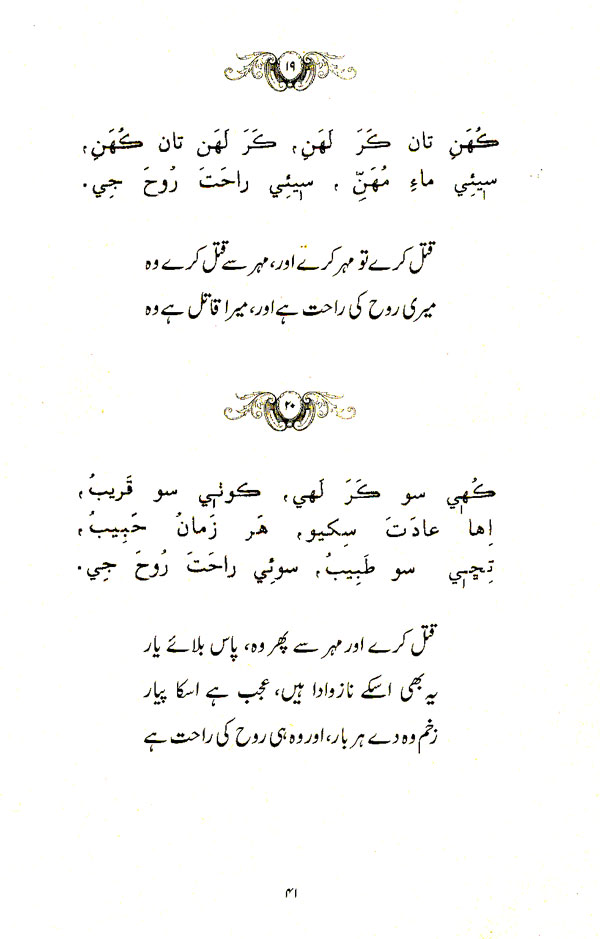 ۱۹
ڪُهَنِ تان ڪَرَ لَهَنِ، ڪَرَ لَهَن تان ڪُهَنِ،
سيئِي ماءِ مُهَنِّ ، سيئِي راحَتَ رُوحَ جِي.
قتل کرے تو مہر کرے اور، مہر سے قتل کرے وہ
میری روح کی راحت ہے اور، میرا قاتل ہے وہ
۲۰
ڪُهي سو ڪَرَ لَهي، ڪوٺي سو قَريبُ،
اِها عادَتَ سِکيو، هَر زَمانُ حَبِيبُ،
تِڇي سو طَبِيبُ، سوئِي راحَتَ رُوحَ جِي.
قتل کرے اور مہر سے پھر وہ، پاس بلائے یار
یہ بھی اسکے نازوادا ہیں، عجب ہے اسکا پیار
زخم وہ دے ہر بار، اور وہ ہی روح کی راحت ہے
۴۱